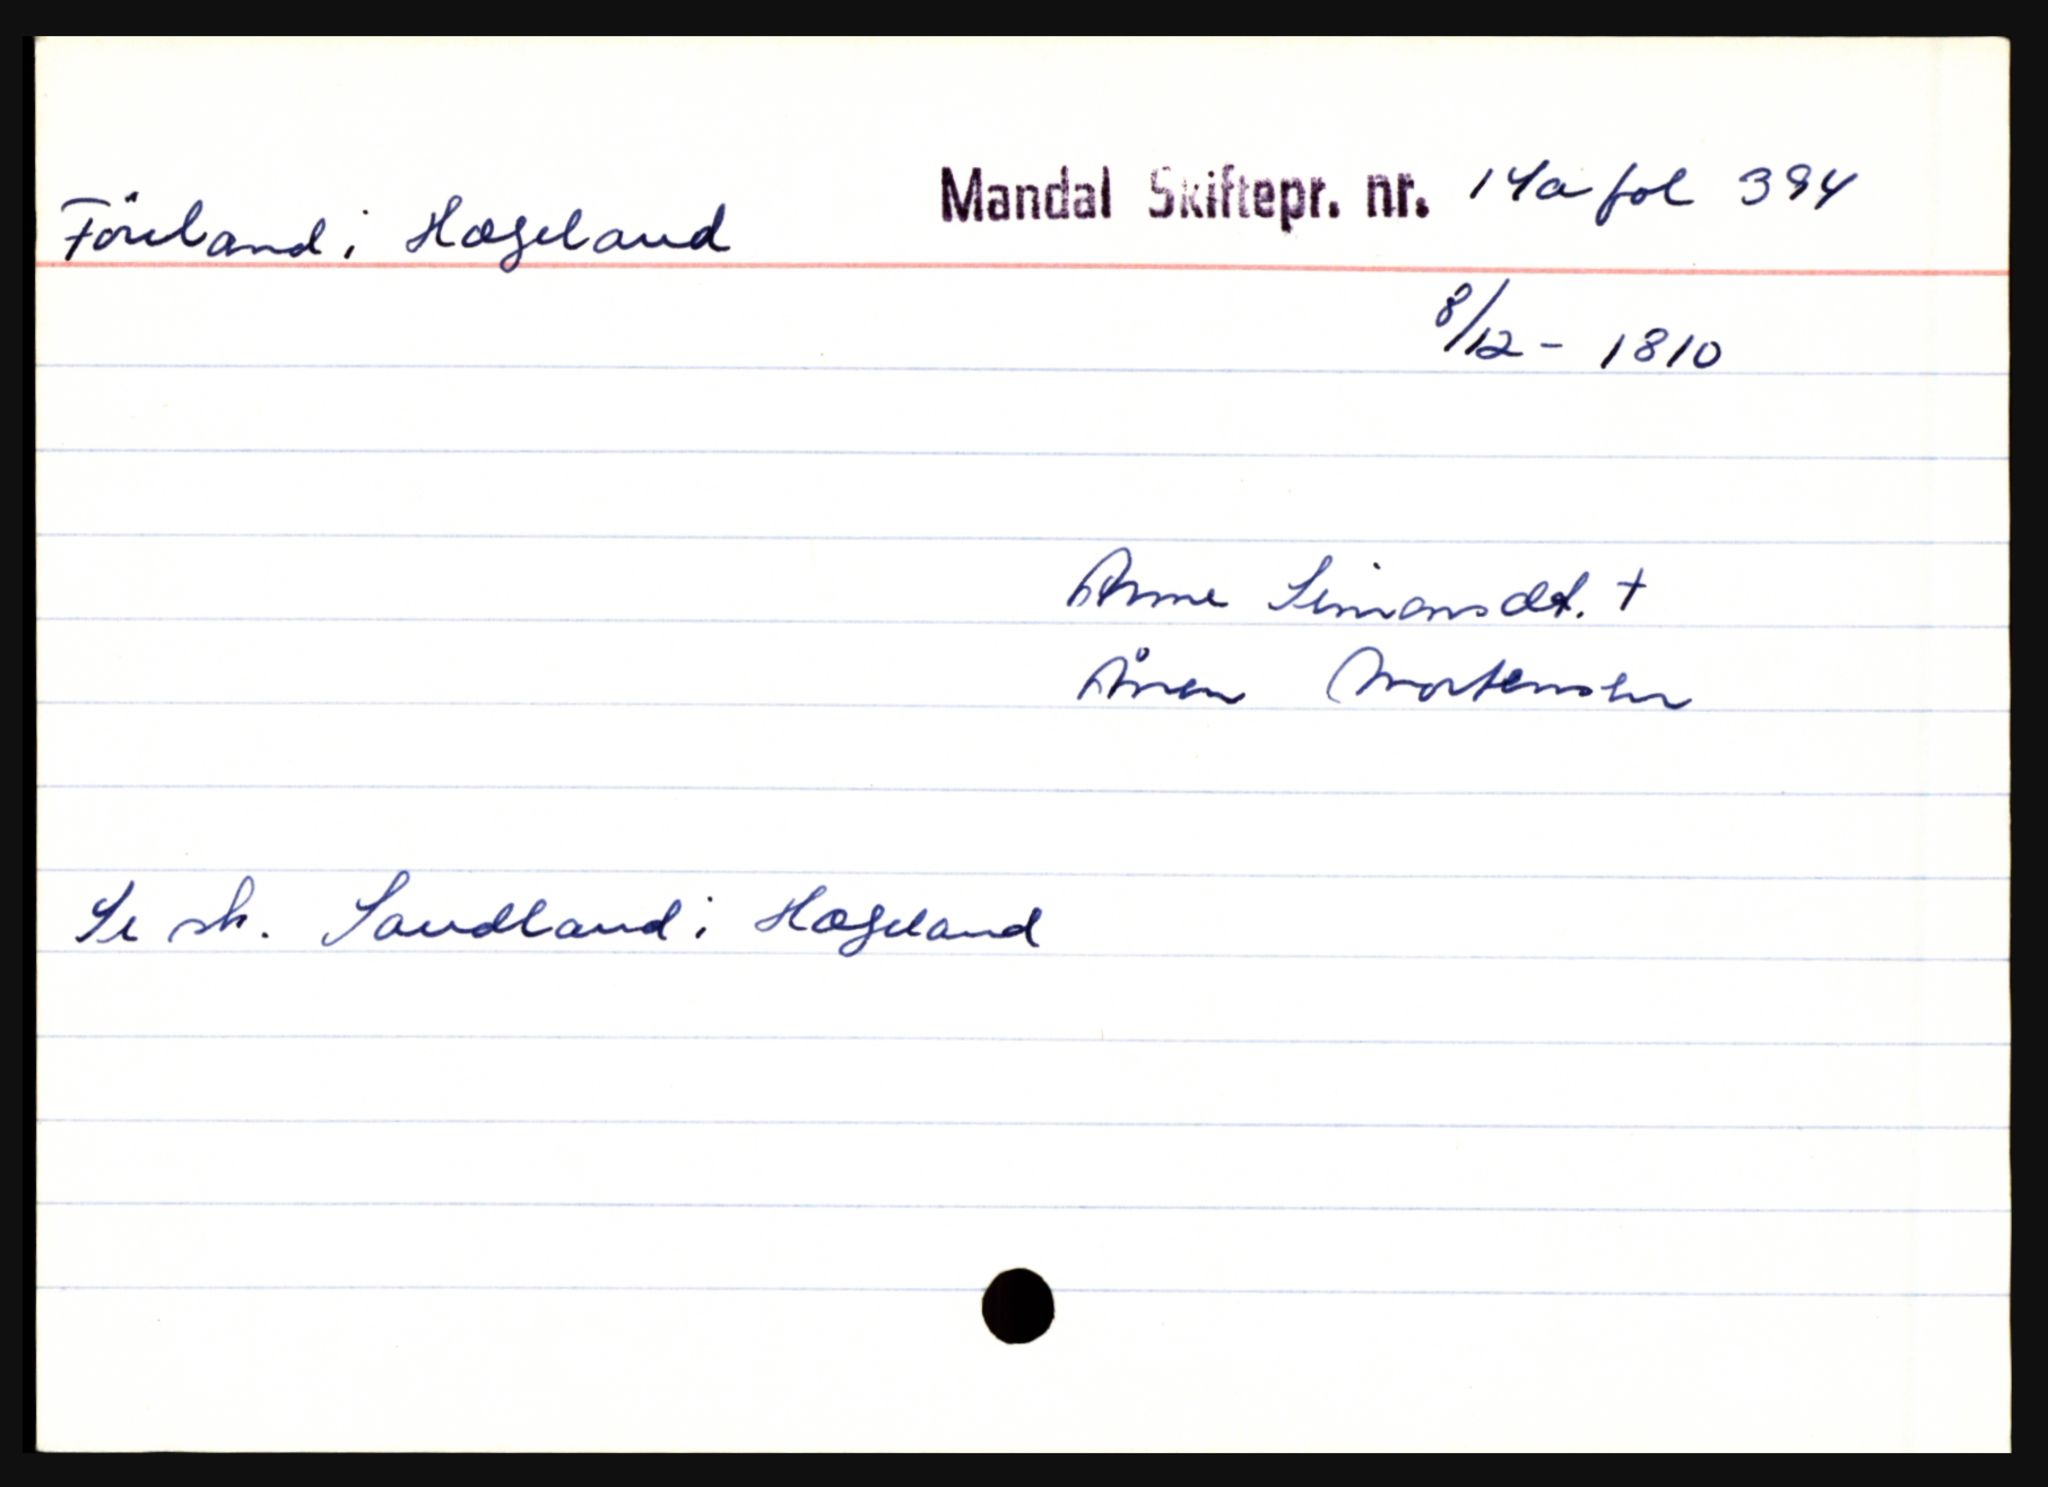 Föreland i Hægeland Mandal Skiftepr. nr. 14a fol 394
8/12 - 1810
Anne Simonsdt. +
Ånen Mortensen
Se sk. Saudland i Hægeland